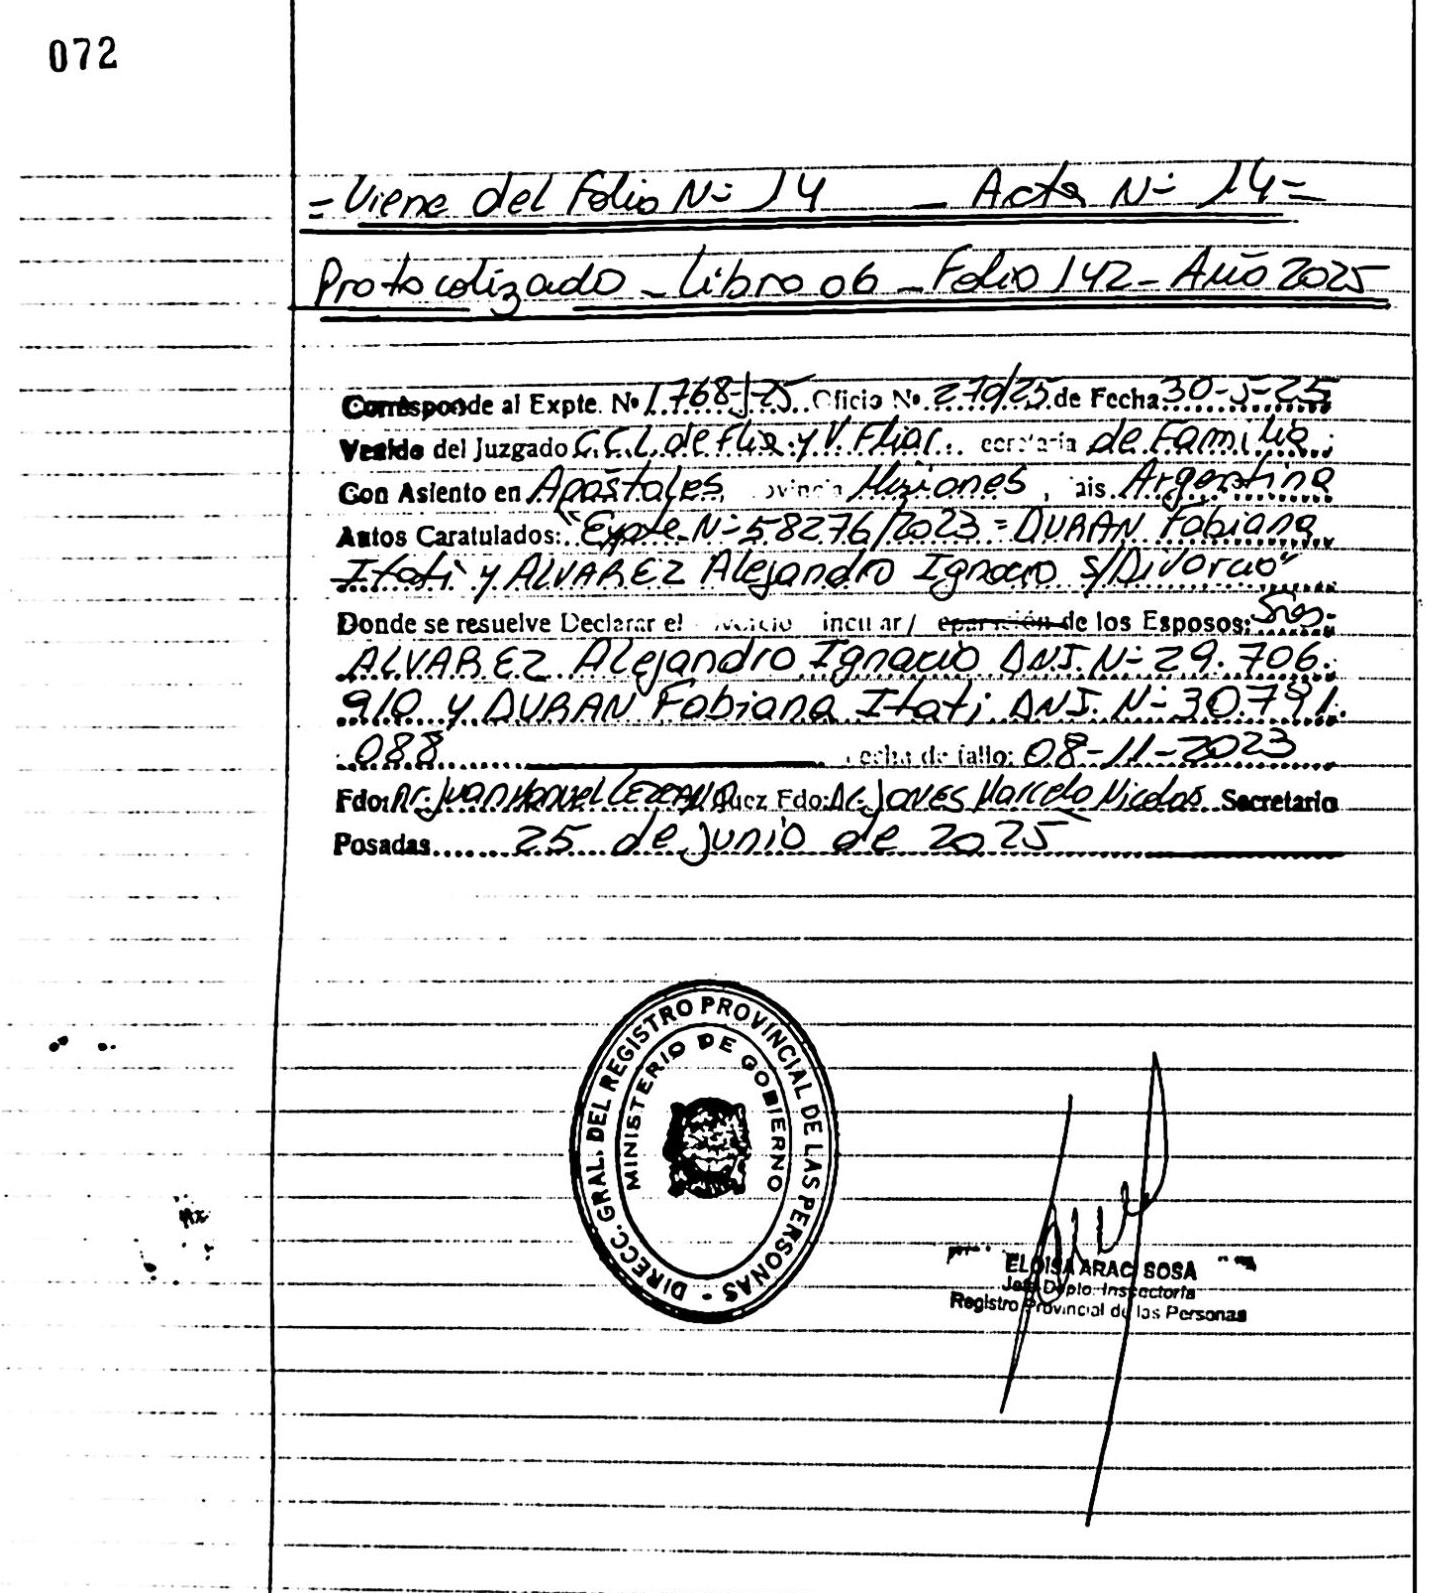 072
= Viene del Folio Nº 14 _ Acta Nº 14 =
Protocolizado _ Libro 06 _ Folio 142 _ Año 2025
Corresponde al Expte. Nº 1768-J-25. Oficio Nº 270/25 de Fecha 30-5-25
Venido del Juzgado C.C.L. de Flia. y V. Fliar. ecretaria de Familia.
Con Asiento en Apóstoles, ovincia Misiones, ais Argentina
Autos Caratulados: "Expte Nº 58276/2023 = DURAN Fabiana
Itatí y ALVAREZ Alejandro Ignacio S/Divorcio"
Donde se resuelve Declarar el ivorcio incular/ eparación de los Esposos: Sres.
ALVAREZ Alejandro Ignacio D.N.I. Nº 29.706.
910 y DURAN Fabiana Itatí D.N.I. Nº 30.791.
088 echa de fallo: 08-11-2023
Fdo: Dr. Juan Manuel LEZCANO Juez Fdo: Dr. JONES Marcelo Nicolas Secretario
Posadas 25 de junio de 2025
DIRECC. GRAL. DEL REGISTRO PROVINCIAL DE LAS PERSONAS -
MINISTERIO DE GOBIERNO
ELOISA ARACI SOSA
Jefa Dpto. Inspectoria
Registro Provincial de las Personas